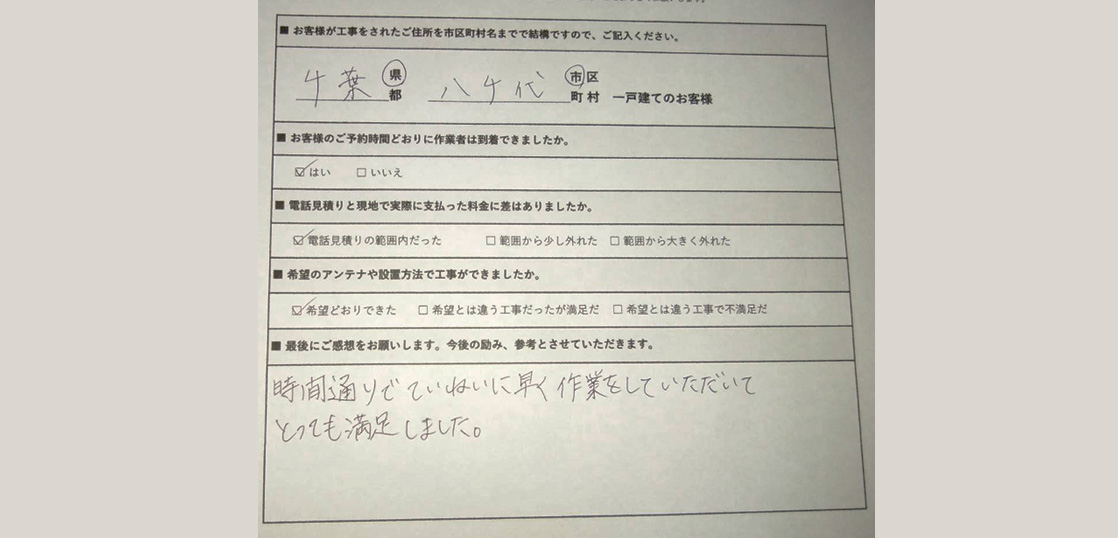 ■ お客様が工事をされたご住所を市区町村名までで結構ですので、ご記入ください。
千葉 県 八千代 市 区
都 町 村 一戸建てのお客様
■ お客様のご予約時間どおりに作業者は到着できましたか。
☑ はい □ いいえ
■ 電話見積りと現地で実際に支払った料金に差はありましたか。
☑ 電話見積りの範囲内だった □ 範囲から少し外れた □ 範囲から大きく外れた
■ 希望のアンテナや設置方法で工事ができましたか。
☑ 希望どおりできた □ 希望とは違う工事だったが満足だ □ 希望とは違う工事で不満足だ
■ 最後にご感想をお願いします。今後の励み、参考とさせていただきます。
時間通りでていねいに早く作業をしていただいて
とっても満足しました。